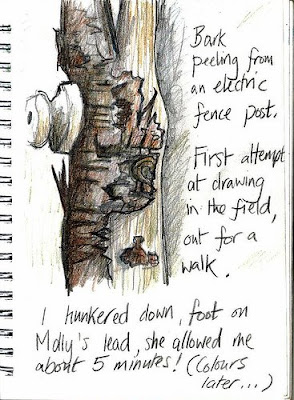 Bark
peeling from
an electric
fence post.
First attempt
at drawing
in the field,
out for a
walk.
I hunkered down, foot on
Molly's lead, she allowed me
about 5 minutes! (Colours
later...)